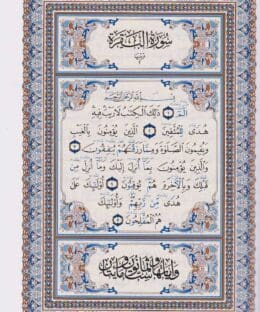 سُورَةُ الْبَقَرَةِ
بِسْمِ اللَّهِ الرَّحْمَٰنِ الرَّحِيمِ
الٓمٓ ۝ ذَٰلِكَ الْكِتَٰبُ لَا رَيْبَ فِيهِ
هُدًى لِّلْمُتَّقِينَ ۝ الَّذِينَ يُؤْمِنُونَ بِالْغَيْبِ
وَيُقِيمُونَ الصَّلَوٰةَ وَمِمَّا رَزَقْنَٰهُمْ يُنفِقُونَ ۝
وَالَّذِينَ يُؤْمِنُونَ بِمَآ أُنزِلَ إِلَيْكَ وَمَآ أُنزِلَ مِن
قَبْلِكَ وَبِالْأَخِرَةِ هُمْ يُوقِنُونَ ۝ أُو۟لَٰٓئِكَ عَلَىٰ
هُدًى مِّن رَّبِّهِمْ وَأُو۟لَٰٓئِكَ
هُمُ الْمُفْلِحُونَ ۝
وآياتها مائتان وست وثمانون